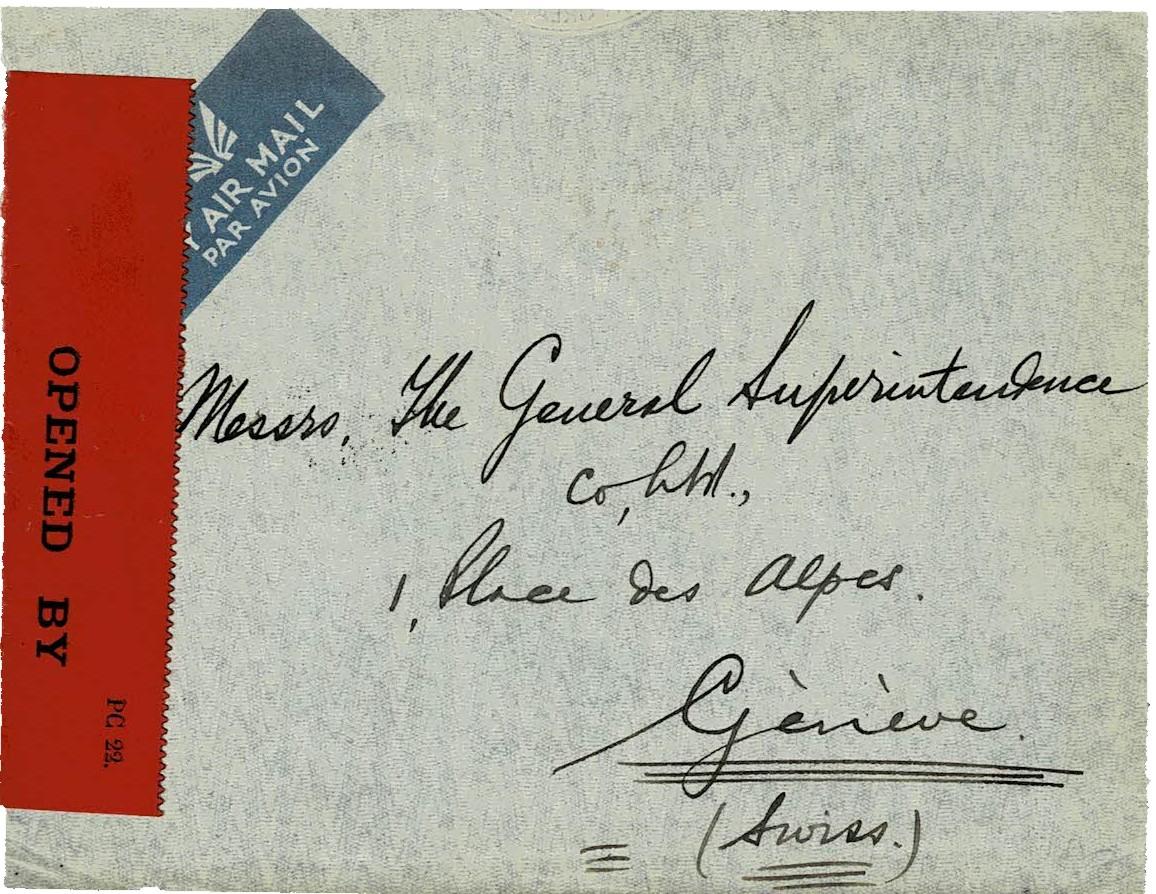 Y AIR MAIL
PAR AVION
OPENED BY
PC 22.
Messrs. The General Superintendence
Co, Ltd.,
1, Place des Alpes.
Gènève.
(Swiss.)